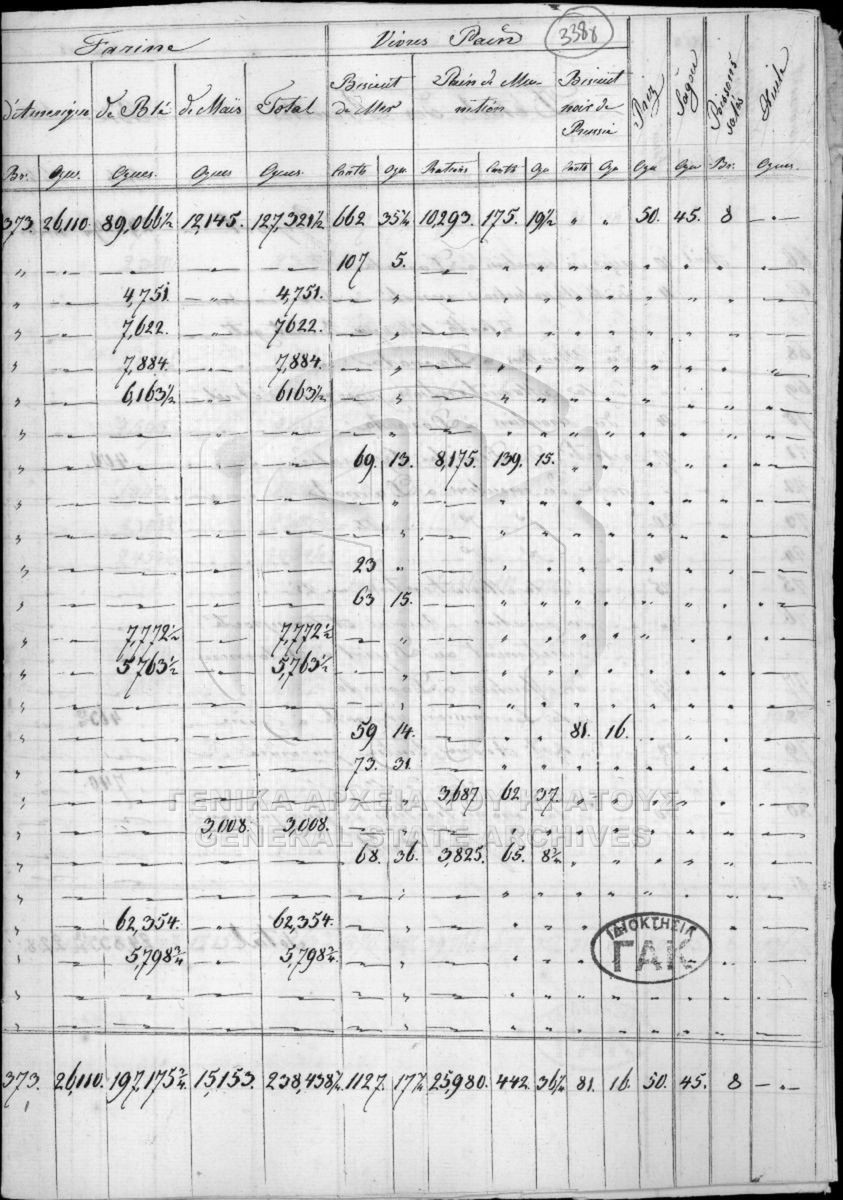 3388
Farine Vivres Pain
d'Amerique de Blé de Maïs Total Biscuit de Mer Pain de Munition Biscuit noir de Russie Riz Sagou Poissons salés Huile
Br. Oques Oques Oques Oques Cants Oqu Rations Cants Oqu Cants Oqu Oqu Oqu Br. Oques
373. 26,110. 89,066½ 12,145. 127,321½ 662 35¼ 10,293. 175. 19½ " " 50. 45. 8 — " —
" — — — — 107 5. — " " " " " " " "
" — 4,751. — 4,751. — " — " " " " " " " "
" — 7,622. — 7622. — " — " " " " " " " "
" — 7,884. — 7,884. — " — " " " " " " " "
" — 6,163½ — 6163½ — " — " " " " " " " "
" — — — — — " — " " " " " " " "
" — — — — 69. 13. 8,175. 139. 15. " " " " " "
" — — — — — " — " " " " " " " "
" — — — — — " — " " " " " " " "
" — — — — 23 " — " " " " " " " "
" — — — — 63 15. — " " " " " " " "
" — 7,772½ — 7,772½ — " — " " " " " " " "
" — 5,763½ — 5,763½ — " — " " " " " " " "
" — — — — — " — " " " " " " " "
" — — — — 59 14. — " " 81. 16. " " " "
" — — — — 73. 31. — " " " " " " " "
" — — — — — " 3,687 62. 37. " " " " " "
ΓΕΝΙΚΑ ΑΡΧΕΙΑ ΤΟΥ ΚΡΑΤΟΥΣ
" — — 3,008. 3,008. — " — " " " " " " " "
GENERAL STATE ARCHIVES
" — — — — 68. 36. 3,825. 65. 8¾ " " " " " "
" — — — — — " — " " " " " " " "
" — 62,354. " 62,354. — " — " " " "
ΙΔΙΟΚΤΗΣΙΑ
ΓΑΚ
" — 5,798¾ " 5,798¾ — " — " " " "
" — — — — — " — " " " " " " " "
" — — — — — " — " " " " " " " "
373. 26,110. 197,175¾ 15,153. 238,438¾ 1127. 17¼ 25,980. 442. 36¼ 81. 16. 50. 45. 8 — " —